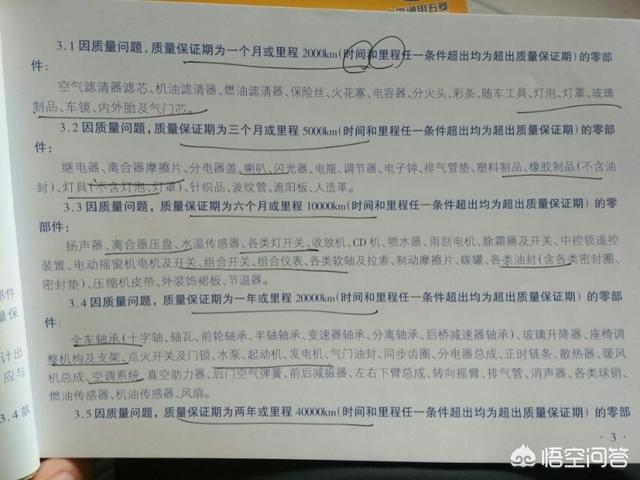 通用五菱
3.1因质量问题，质量保证期为一个月或里程2000km(时间和里程任一条件超出均为超出质量保证期)的零部
件：
空气滤清器滤芯、机油滤清器、燃油滤清器、保险丝、火花塞、电容器、分火头、彩条、随车工具、灯泡、灯罩、玻璃
制品、车镜、内外胎及气门芯。
3.2因质量问题，质量保证期为三个月或里程5000km(时间和里程任一条件超出均为超出质量保证期)的零部
件：
继电器、离合器摩擦片、分电器盖、喇叭、闪光器、电瓶、调节器、电子钟、排气管垫、塑料制品、橡胶制品(不含油
封)、灯具(不含灯泡、灯罩)、针织品、波纹管、遮阳板、人造革。
3.3因质量问题，质量保证期为六个月或里程10000km(时间和里程任一条件超出均为超出质量保证期)的零
部件：
扬声器、离合器压盘、水温传感器、各类灯开关、收放机、CD机、喷水器、雨刮电机、除霜器及开关、中控锁遥控
装置、电动摇窗机电机及开关、组合开关、组合仪表、各类软轴及拉索、制动摩擦片、碳罐、各类油封(含各类密封圈、
密封垫)、压缩机皮带、外装饰裙板、节温器。
3.4因质量问题，质量保证期为一年或里程20000km(时间和里程任一条件超出均为超出质量保证期)的零部
件：
全车轴承(十字轴、轴瓦、前轮轴承、半轴轴承、变速器轴承、分离轴承、后桥减速器轴承)、玻璃升降器、座椅调
整机构及支架、点火开关及门锁、水泵、起动机、发电机、气门油封、同步齿圈、分电器总成、正时链条、散热器、暖风
机总成、空调系统、真空助力器、后门空气弹簧、前后减振器、左右下臂总成、转向摇臂、排气管、消声器、各类球销、
燃油传感器、机油传感器、风扇。
3.5因质量问题，质量保证期为两年或里程40000km(时间和里程任一条件超出均为超出质量保证期)的零部
·3·
部件
量保
计出
应与
3.4款
悟空问答